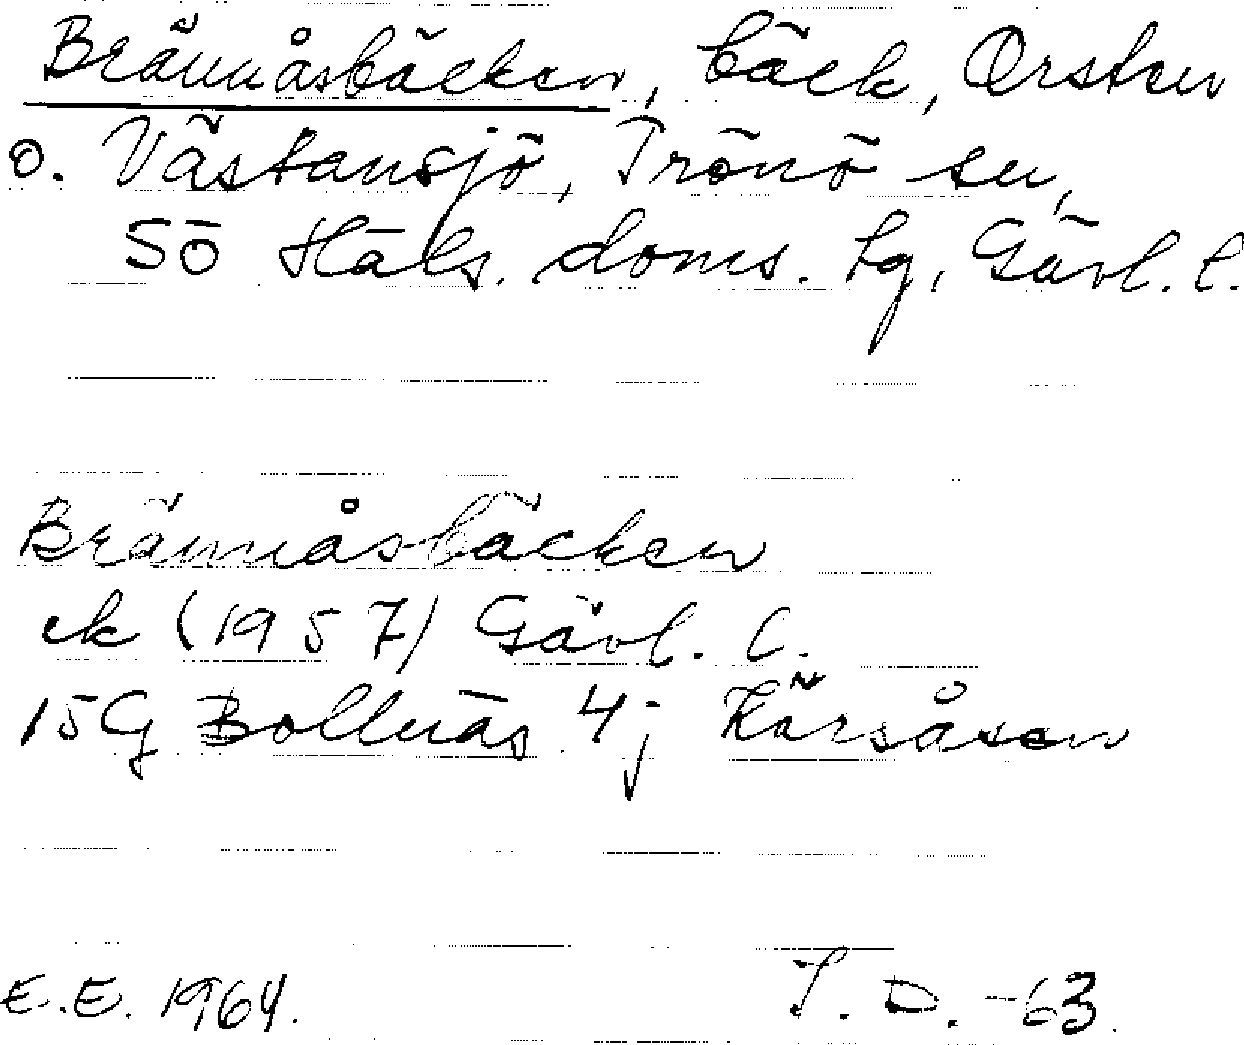 Brännåsbäcken, bäck, Orsten
o. Västansjö, Trönö sn,
SÖ Häls. doms. tg, Gävl. l.
Brännåsbäcken
ek (1957) Gävl. l.
15G Bollnäs 4j Kårsåsen
E.E. 1964.
T. D. -63.